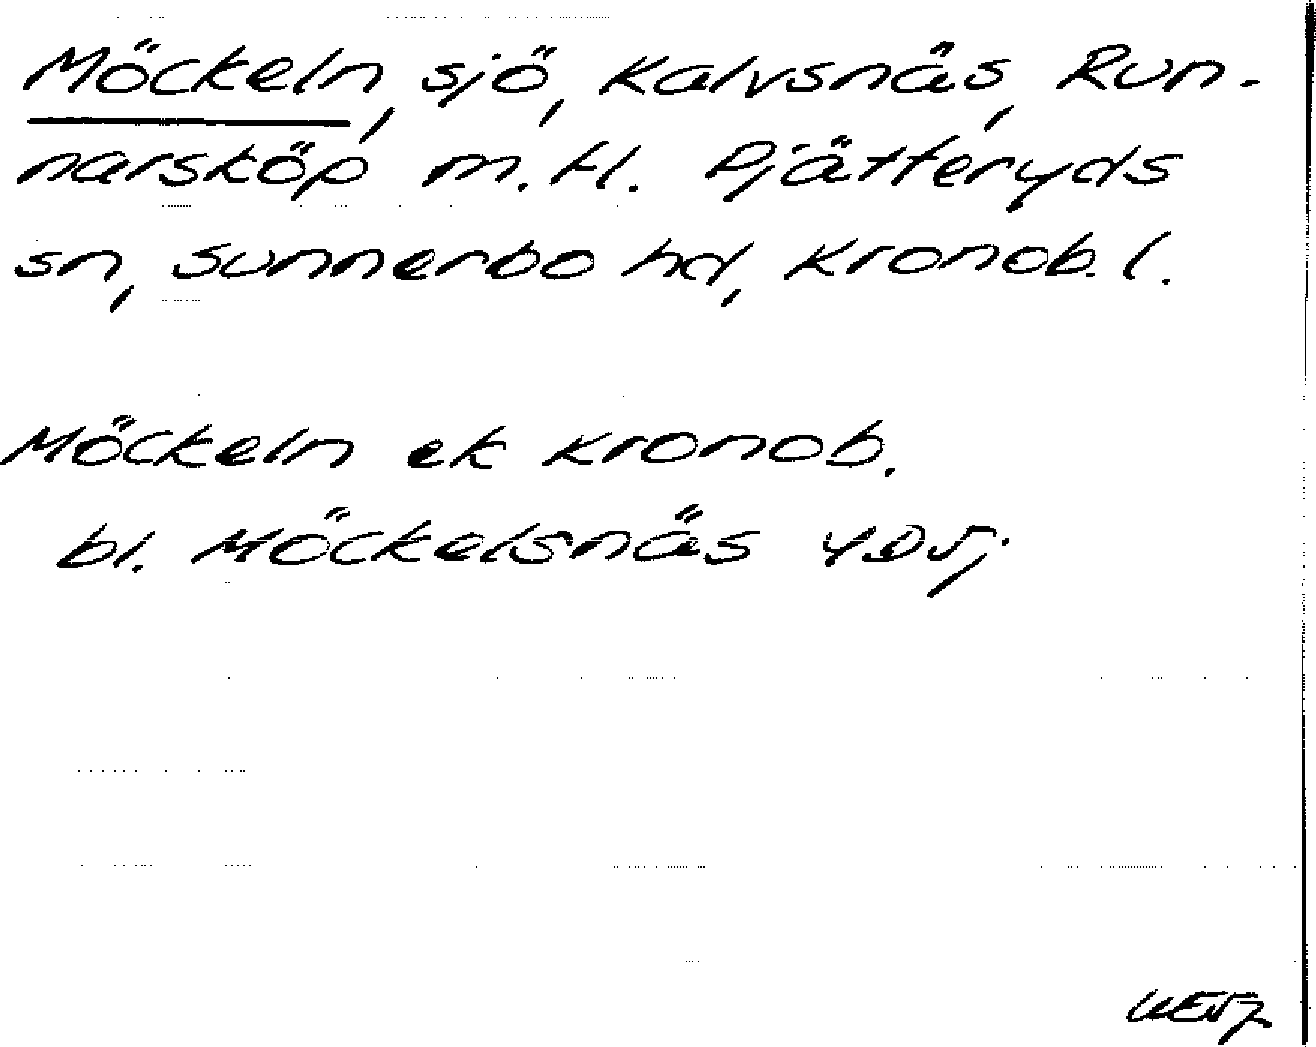 Möckeln, sjö, Kalvsnäs, Run-
narsköp m.fl. Pjätteryds
sn, Sunnerbo hd, Kronob. l.
Möckeln ek Kronob.
bl. Möckelsnäs